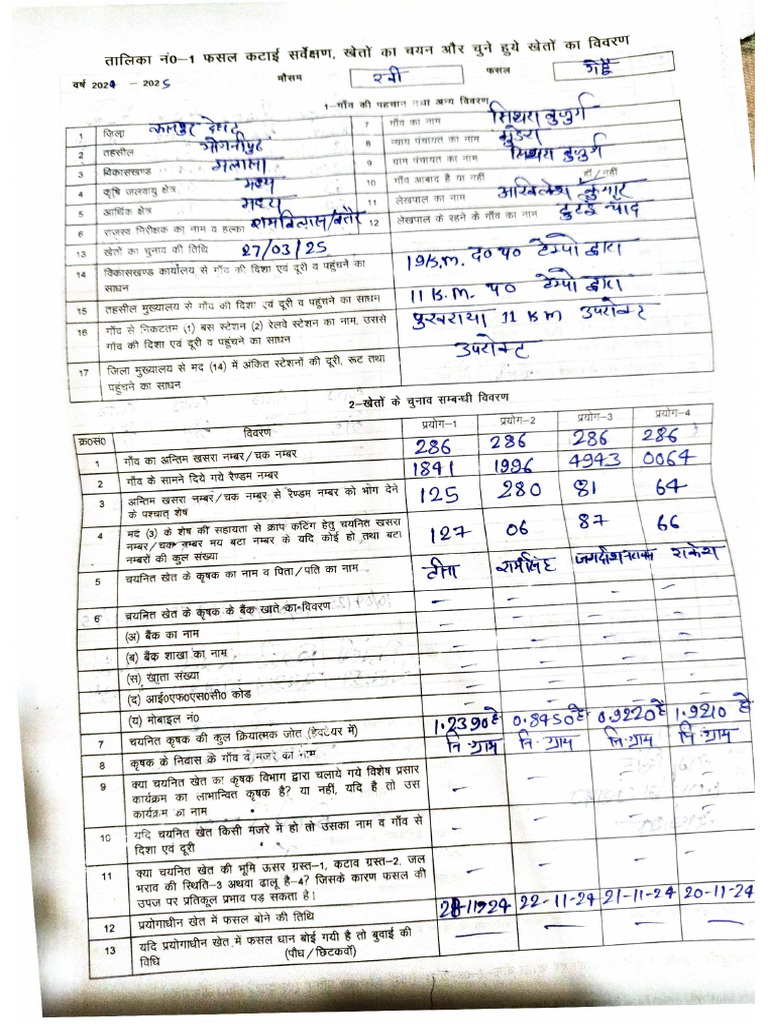 तालिका नं0–1 फसल कटाई सर्वेक्षण, खेतों का चयन और चुने हुये खेतों का विवरण
वर्ष 2024 - 2025 मौसम रबी फसल गेहूँ
1–गाँव की पहचान तथा अन्य विवरण
1 जिला कानपुर देहात 7 गाँव का नाम सिथरा बुजुर्ग
2 तहसील भोगनीपुर 8 न्याय पंचायत का नाम
3 विकासखण्ड मलासा 9 ग्राम पंचायत का नाम सिथरा बुजुर्ग
4 कृषि जलवायु क्षेत्र मध्य 10 गाँव आबाद है या नहीं हाँ / नहीं
5 आर्थिक क्षेत्र मध्य 11 लेखपाल का नाम अखिलेश कुमार
6 राजस्व निरीक्षक का नाम व हल्का रामविलास/ 12 लेखपाल के रहने के गाँव का नाम
13 खेतों का चुनाव की तिथि 27/03/25
14 विकासखण्ड कार्यालय से गाँव की दिशा एवं दूरी व पहुंचने का साधन 19 K.m. द0 प0 टेम्पो द्वारा
15 तहसील मुख्यालय से गाँव की दिशा एवं दूरी व पहुंचने का साधन 11 K.M. प0 टेम्पो द्वारा
16 गाँव से निकटतम (1) बस स्टेशन (2) रेलवे स्टेशन का नाम, उससे गाँव की दिशा एवं दूरी व पहुंचने का साधन पुखराया 11 KM उपरोक्ट
17 जिला मुख्यालय से मद (14) में अंकित स्टेशनों की दूरी, रूट तथा पहुंचने का साधन उपरोक्ट
2–खेतों के चुनाव सम्बन्धी विवरण
क्र0स0 विवरण प्रयोग–1 प्रयोग–2 प्रयोग–3 प्रयोग–4
1 गाँव का अन्तिम खसरा नम्बर/चक नम्बर 286 286 286 286
2 गाँव के सामने दिये गये रैण्डम नम्बर 1841 1996 4943 0064
3 अन्तिम खसरा नम्बर/चक नम्बर से रैण्डम नम्बर को भाग देने के पश्चात् शेष 125 280 81 64
4 मद (3) के शेष की सहायता से क्राप कटिंग हेतु चयनित खसरा नम्बर/चक नम्बर मय बटा नम्बर के यदि कोई हो तथा बटा नम्बरों की कुल संख्या 127 06 87 66
5 चयनित खेत के कृषक का नाम व पिता/पति का नाम रामसिंह राकेश
6 चयनित खेत के कृषक के बैंक खाते का विवरण – – – –
(अ) बैंक का नाम – – – –
(ब) बैंक शाखा का नाम – – – –
(स) खाता संख्या – – – –
(द) आई0एफ0एस0सी0 कोड – – – –
(य) मोबाइल नं0 – – – –
7 चयनित कृषक की कुल क्रियात्मक जोत (हेक्टेयर में) 1.2390 हे 0.8450 हे 0.9220 हे 1.9210 हे
8 कृषक के निवास के गाँव व मजरे का नाम नि. ग्राम नि. ग्राम नि. ग्राम नि. ग्राम
9 क्या चयनित खेत का कृषक विभाग द्वारा चलाये गये विशेष प्रसार कार्यक्रम का लाभान्वित कृषक है? या नहीं, यदि है तो उस कार्यक्रम का नाम – – – –
10 यदि चयनित खेत किसी मजरे में हो तो उसका नाम व गाँव से दिशा एवं दूरी – – – –
11 क्या चयनित खेत की भूमि ऊसर ग्रस्त-1, कटाव ग्रस्त-2, जल भराव की स्थिति-3 अथवा ढालू है-4? जिसके कारण फसल की उपज पर प्रतिकूल प्रभाव पड़ सकता है। – – – –
12 प्रयोगाधीन खेत में फसल बोने की तिथि 22-11-24 21-11-24 20-11-24
13 यदि प्रयोगाधीन खेत में फसल धान बोई गयी है तो बुवाई की विधि (पौध/छिटकवाँ) – – – –